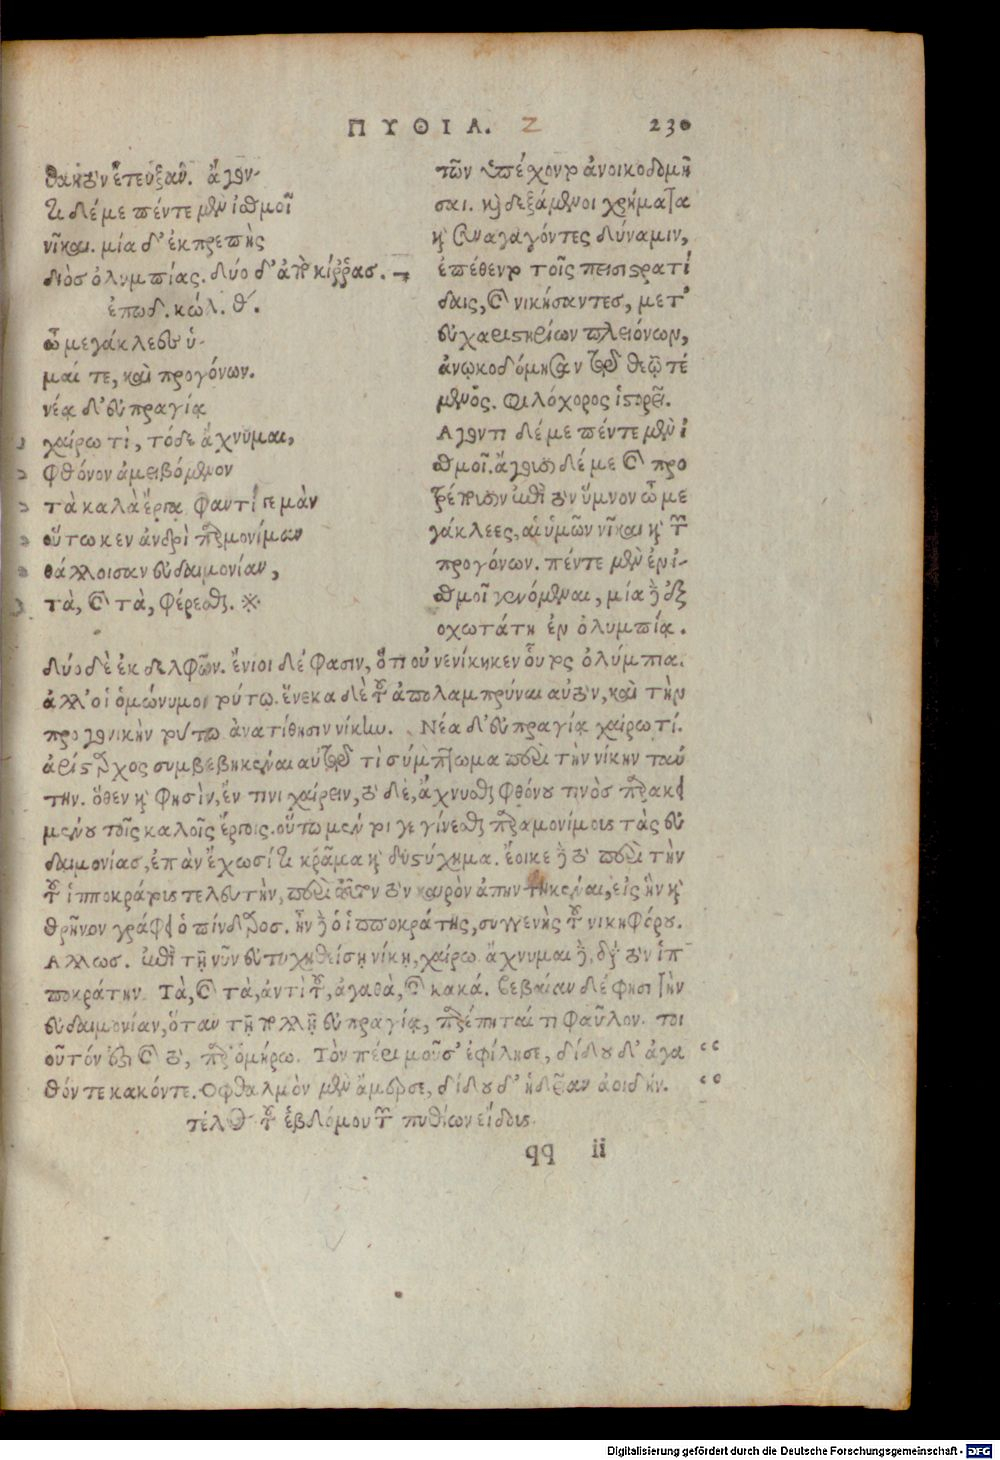 ΠΥΘΙΑ. Ζ 230
θαητὸν ἔτευξαν. ἄγον-
τι δέ με πέντε μὲν ἰσθμοῖ
νῖκαι. μία δ' ἐκπρεπὴς
διὸς ὀλυμπίας. δύο δ' ἀπὸ κίῤῥας.
ἐπῳδ. κώλ. θ.
ὦ μεγάκλεες ὑ-
μαί τε, καὶ προγόνων.
νέᾳ δ' εὐπραγίᾳ
χαίρω τὶ, τόδε ἄχνυμαι,
φθόνον ἀμειβόμενον
τὰ καλὰ ἔργα φαντί γε μὰν
οὕτω κεν ἀνδρὶ παρμονίμαν
θάλλοισαν εὐδαιμονίαν,
τὰ, καὶ τὰ, φέρεσθαι.
τῶν ὑπέχοντο ἀνοικοδομῆ
σαι. καὶ δεξάμενοι χρήματα
καὶ συναγαγόντες δύναμιν,
ἐπέθεντο τοῖς πεισιστρατί
δαις, καὶ νικήσαντες, μετ'
εὐχαριστηρίων πλειόνων,
ἀνῳκοδόμησαν τῷ θεῷ τέ
μενος. Φιλόχορος ἱστορεῖ.
Αγοντι δέ με πέντε μὲν ἰ
σθμοῖ. ἄγουσι δέ με καὶ προ
τρέπουσιν ἐπὶ τὸν ὕμνον ὦ με
γάκλεες, αἱ ὑμῶν νῖκαι καὶ τῶν
προγόνων. πέντε μὲν ἐν ἰ-
σθμοῖ γενόμεναι, μία δὲ ἐξ
οχωτάτη ἐν ὀλυμπίᾳ.
δύο δὲ ἐκ δελφῶν. ἔνιοι δέ φασιν, ὅτι οὐ νενίκηκεν οὗτος ὀλύμπια.
ἀλλ' οἱ ὁμώνυμοι τούτῳ. ἕνεκα δὲ τοῦ ἀπολαμπρύναι αὐτὸν, καὶ τὴν
προγονικὴν τούτῳ ἀνατίθησιν νίκην. Νέᾳ δ' εὐπραγίᾳ χαίρω τί.
ἀρίσταρχος συμβεβηκέναι αὐτῷ τὶ σύμπτωμα περὶ τὴν νίκην ταύ
την. ὅθεν καὶ φησὶν, ἐν τινι χαίρειν, τὸ δὲ, ἄχνυσθαι φθόνου τινὸς παρακει
μένου τοῖς καλοῖς ἔργοις. οὕτω μέν τοι γε γίνεσθαι παραμονίμους τὰς εὐ
δαιμονίας, ἐπὰν ἔχωσί τι κρᾶμα καὶ δυστύχημα. ἔοικε δὲ τὸ περὶ τὴν
τοῦ ἱπποκράτους τελευτὴν, περὶ αὐτὸν τὸν καιρὸν ἀπηντηκέναι, εἰς ἣν καὶ
θρῆνον γράφει ὁ πίνδαρος. ἦν δὲ ὁ ἱπποκράτης, συγγενὴς τοῦ νικηφόρου.
Αλλως. ἐπὶ τῇ νῦν εὐτυχηθείσῃ νίκῃ, χαίρω. ἄχνυμαι δὲ, διὰ τὸν ἱπ
ποκράτην. Τὰ, καὶ τὰ, ἀντὶ τοῦ, ἀγαθὰ, καὶ κακά. βεβαίαν δέ φησι τὴν
εὐδαιμονίαν, ὅταν τῇ πολλῇ εὐπραγίᾳ, παρέπηταί τι φαῦλον. τοι
οῦτόν ἐστι καὶ τὸ, παρ' ὁμήρῳ. Τὸν πέρι μοῦσ' ἐφίλησε, δίδου δ' ἀγα
θόν τε κακόν τε. Οφθαλμὸν μὲν ἄμερσε, δίδου δ' ἡδεῖαν ἀοιδήν.
τέλος τοῦ ἑβδόμου τῶν πυθίων εἴδους.
qq ii
Digitalisierung gefördert durch die Deutsche Forschungsgemeinschaft - DFG